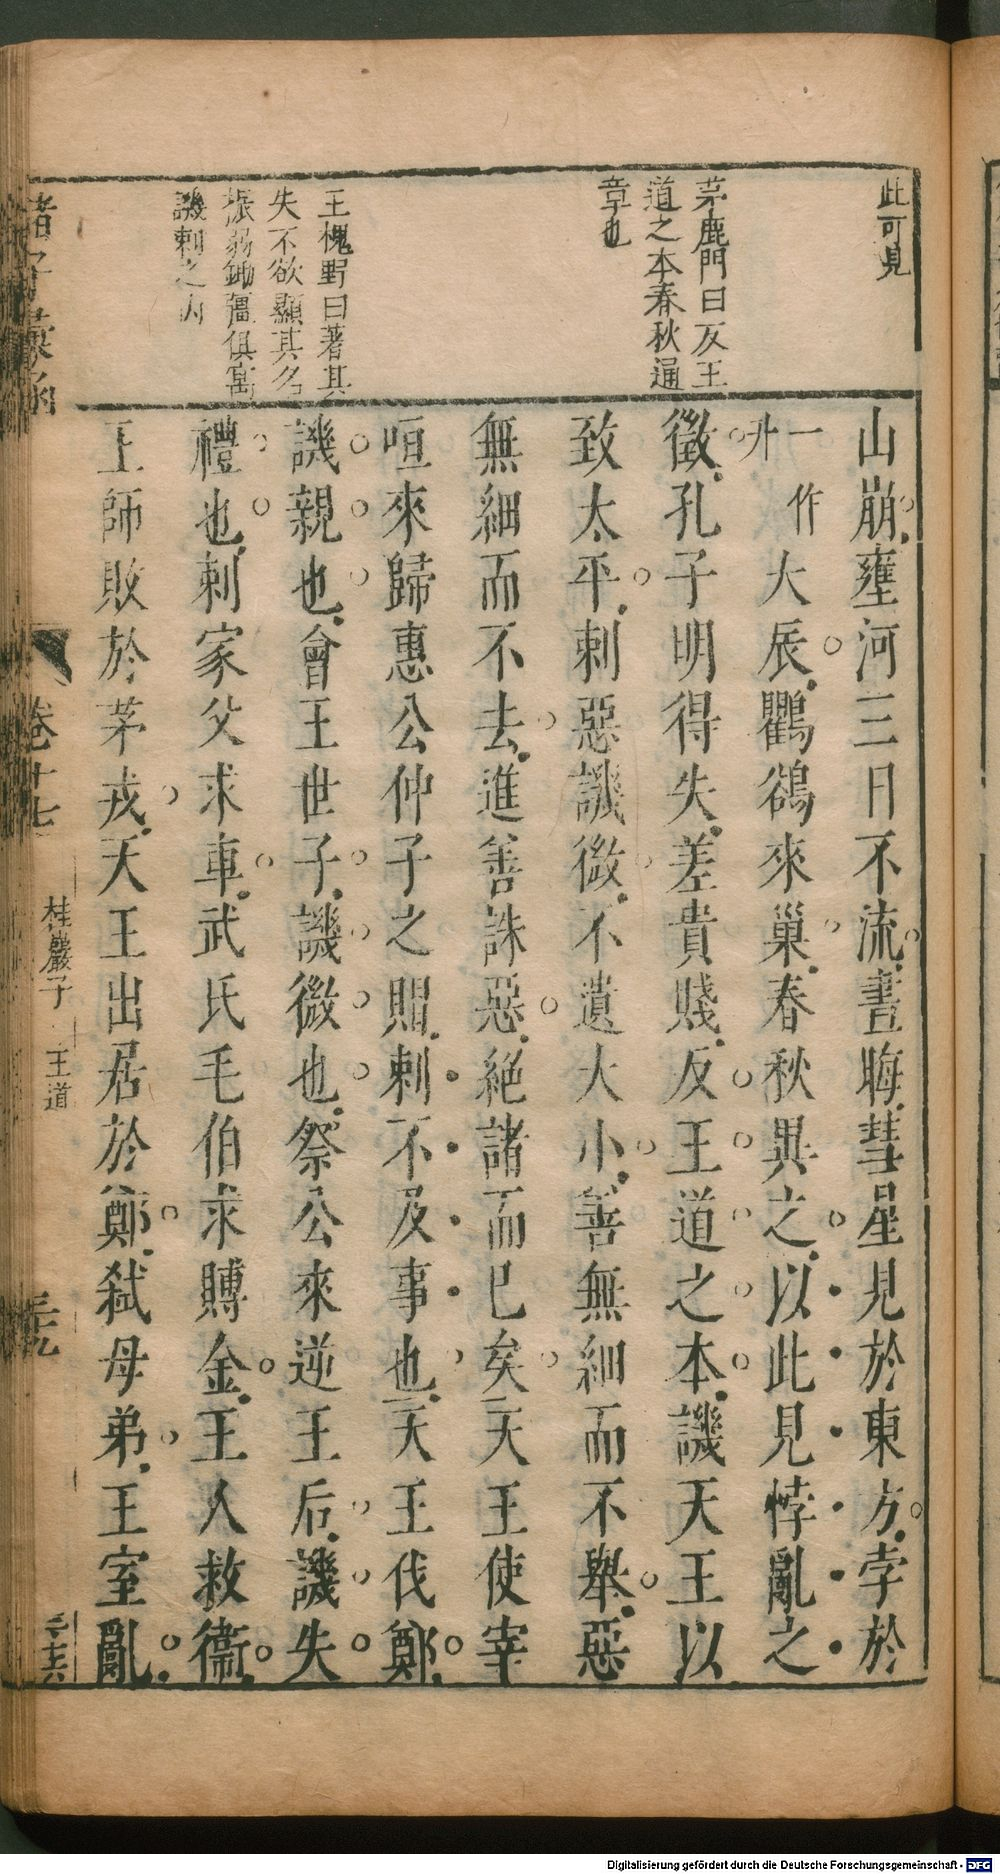 此可見
茅鹿門曰反王
道之本春秋通
章也
王槐野曰著其
失不欲顯其名
振弱鋤彊俱寓
譏刺之內
山崩壅河三日不流晝晦彗星見於東方孛於
一作升大辰鸜鵒來巢春秋異之以此見悖亂之
徵孔子明得失差貴賤反王道之本譏天王以
致太平刺惡譏微不遺大小善無細而不舉惡
無細而不去進善誅惡絕諸而已矣天王使宰
咺來歸惠公仲子之賵刺不及事也天王伐鄭
譏親也會王世子譏微也祭公來逆王后譏失
禮也刺家父求車武氏毛伯求賻金王人救衞
王師敗於茅戎天王出居於鄭弒母弟王室亂
諸子彙函
卷十七
桂巖子
王道
Digitalisierung gefördert durch die Deutsche Forschungsgemeinschaft - DFG